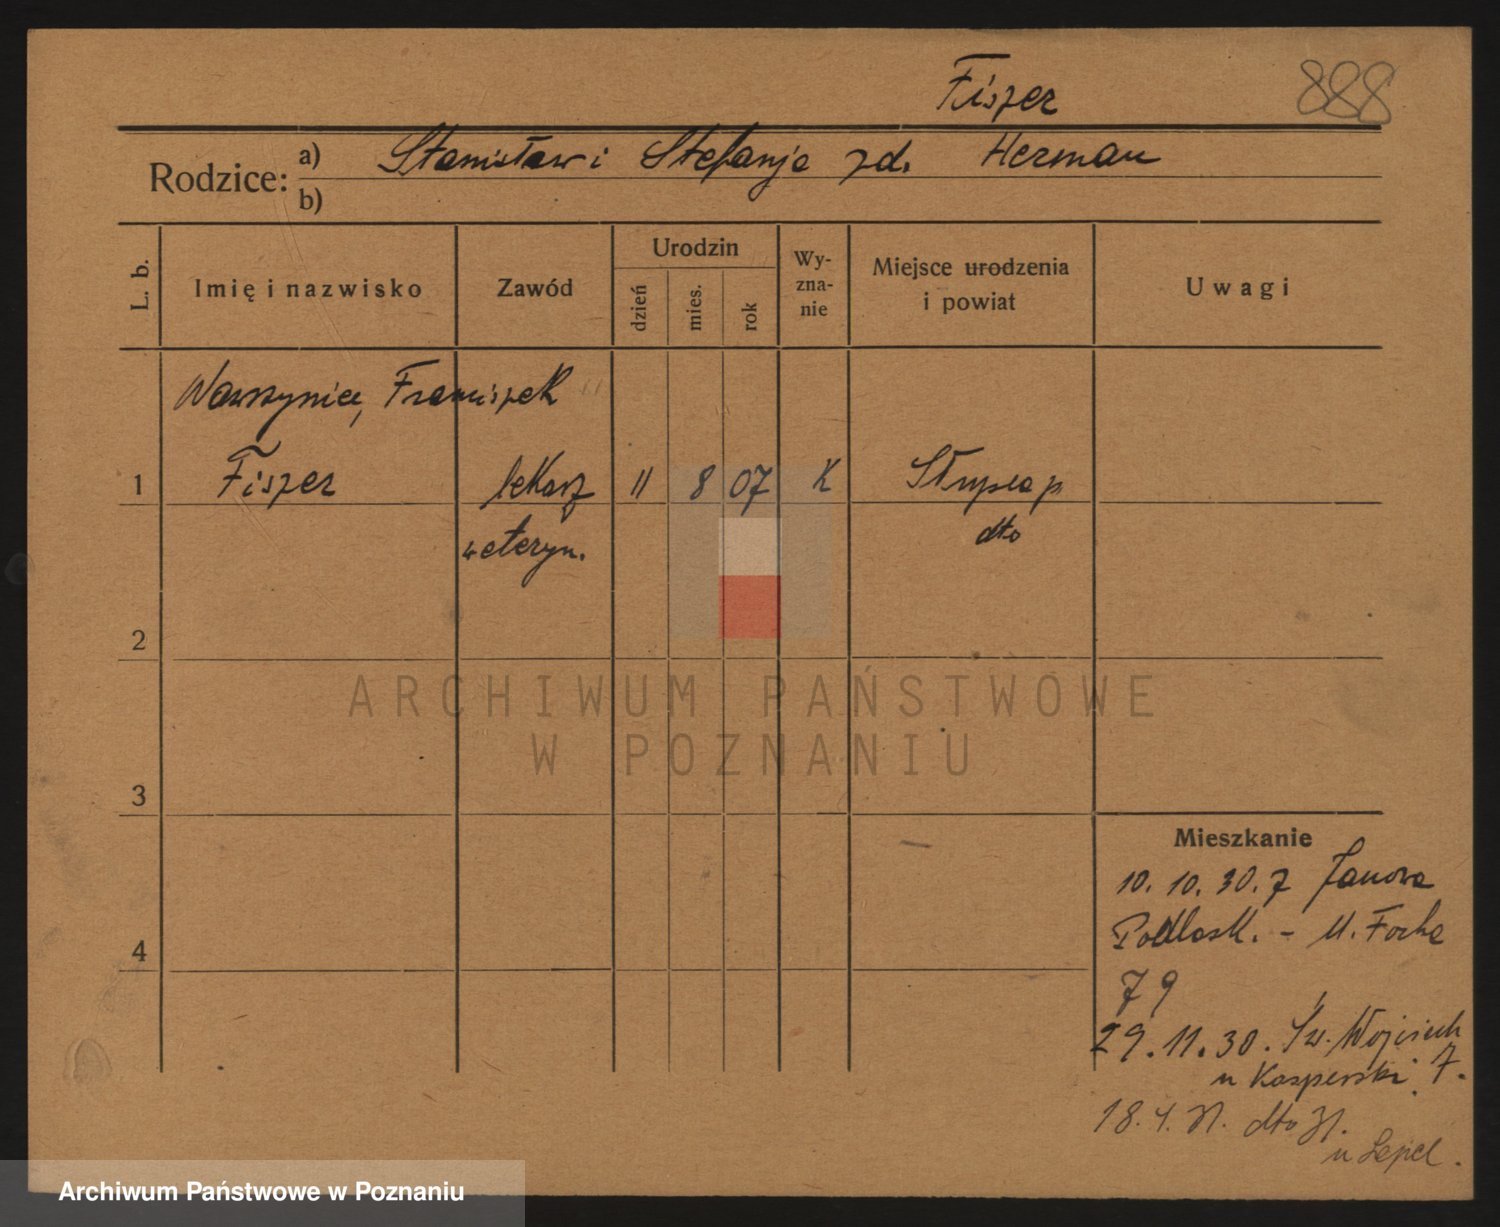 Fiszer 888
Rodzice: a) Stanisław i Stefanja zd. Herman
b)
L. b. Imię i nazwisko Zawód Urodzin dzień mies. rok Wy-zna-nie Miejsce urodzenia i powiat Uwagi
Wawrzyniec, Franciszek
1 Fiszer lekarz 11 8 07 K Słupca p.
weteryn. dto
2
ARCHIWUM PAŃSTWOWE
W POZNANIU
3
Mieszkanie
10. 10. 30. z Janowa
4 Podlask. - M. Focha
79
29. 11. 30. Św. Wojciech
u Kasperski 7.
18. 4. 31. dto 31.
u
Archiwum Państwowe w Poznaniu